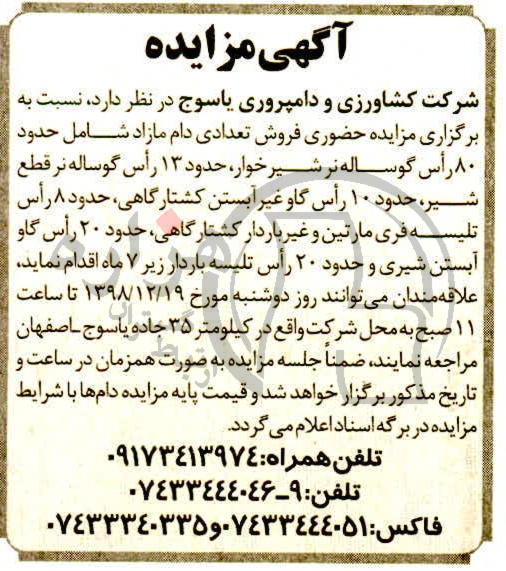 آگهی مزایده
شرکت کشاورزی و دامپروری یاسوج در نظر دارد، نسبت به
برگزاری مزایده حضوری فروش تعدادی دام مازاد شامل حدود
۸۰ رأس گوساله نر شیرخوار، حدود ۱۳ رأس گوساله نر قطع
شیر، حدود ۱۰ رأس گاو غیر آبستن کشتارگاهی، حدود ۸ رأس
تلیسه فری مارتین و غیر باردار کشتارگاهی، حدود ۲۰ رأس گاو
آبستن شیری و حدود ۲۰ رأس تلیسه باردار زیر ۷ ماه اقدام نماید،
علاقه‌مندان می‌توانند روز دوشنبه مورخ ۱۳۹۸/۱۲/۱۹ تا ساعت
۱۱ صبح به محل شرکت واقع در کیلومتر ۳۵ جاده یاسوج ـ اصفهان
مراجعه نمایند، ضمناً جلسه مزایده به صورت همزمان در ساعت و
تاریخ مذکور برگزار خواهد شد و قیمت پایه مزایده دام‌ها با شرایط
مزایده در برگه اسناد اعلام می‌گردد.
تلفن همراه: ۰۹۱۷۳۴۱۳۹۷۴
تلفن: ۹ـ۰۷۴۳۳۴۴۴۰۴۶
فاکس: ۰۷۴۳۳۴۴۴۰۵۱ و ۰۷۴۳۳۳۴۰۳۳۵